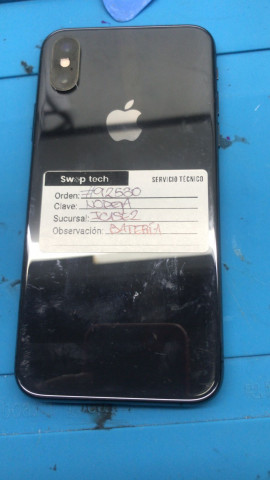 Swap tech SERVICIO TÉCNICO
Orden: 792530
Clave: NODEJA
Sucursal:
Observación: BATERIA